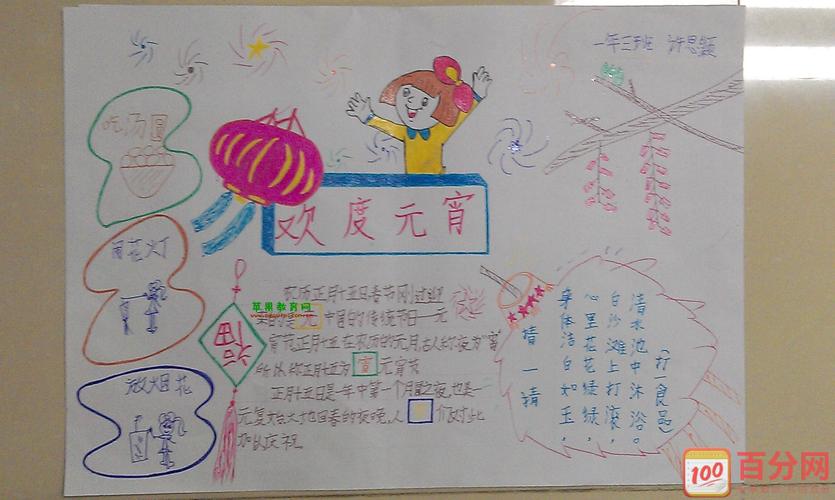 一年三班 许思颖
吃汤圆
闹花灯
放烟花
欢度元宵
福
苹果教育网
农历正月十五日春节刚过迎
来的是元中国的传统节日一元
宵节正月十五在农历的元月古人称夜为"宵
所以称正月十五为宵元宵节
正月十五日是一年中第一个月圆之夜,也是一
元复始大地回春的夜晚,人们对此
加以庆祝
猜一猜
(打一食品)
清水池中沐浴。
白沙滩上打滚,
心里花绿绿,
身体洁白如玉,
100
百分网